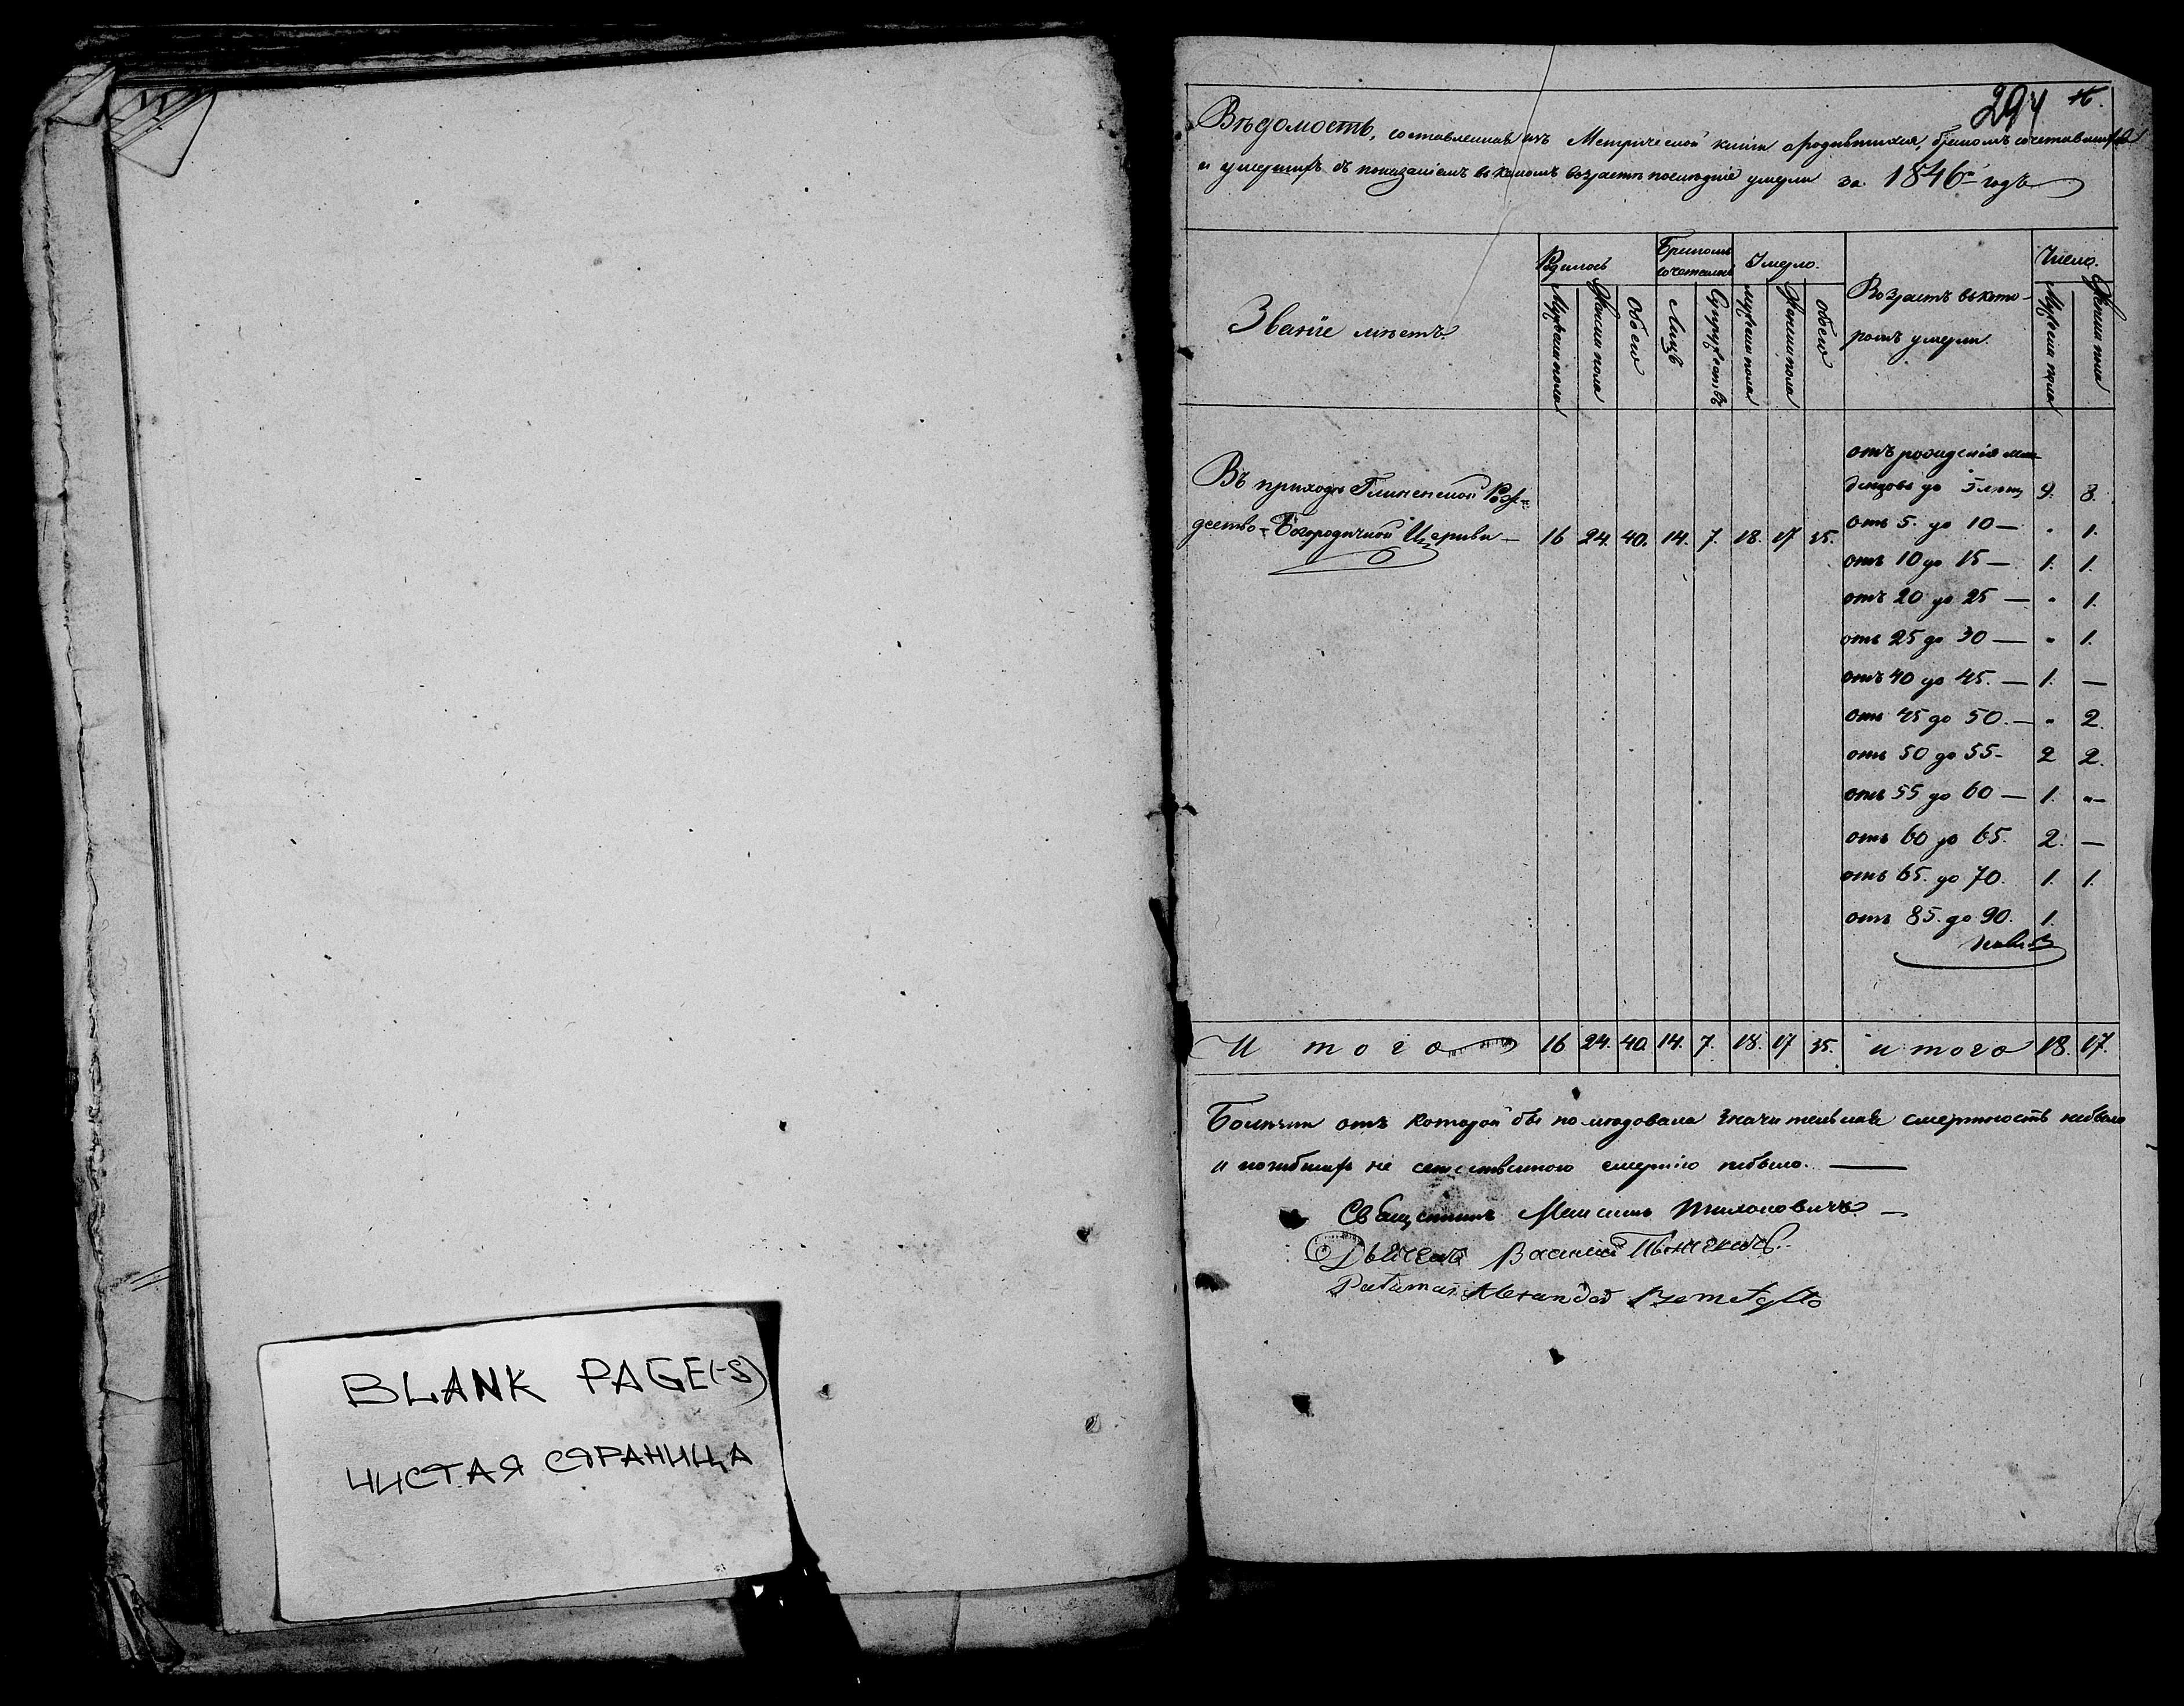 BLANK PAGE(-S)
ЧИСТАЯ СТРАНИЦА
294
Вѣдомость, составленная изъ Метрической книги о родившихся, бракомъ сочетавшихся
и умершихъ съ показаніемъ въ какомъ возрастѣ послѣдніе умерли за 1846й годъ
Званіе мѣстъ. Родилось Бракомъ сочеталось Умерло. Возрастъ въ которомъ умерли. Число.
Мужеска пола Женска пола Обоего Лицъ Супружествъ Мужеска пола Женска пола Обоего Мужеска пола Женска пола
Въ приходѣ Глиненской Рож-
дество-Богородичной Церкви — 16 24. 40. 14. 7. 18. 17 35.
отъ рожденія мла
денцовъ до 5 лѣтъ 9. 8.
отъ 5. до 10 — " 1.
отъ 10 до 15 — 1. 1.
отъ 20 до 25 — " 1.
отъ 25 до 30 — " 1.
отъ 40 до 45. — 1. —
отъ 45 до 50. — " 2.
отъ 50 до 55 - 2 2.
отъ 55 до 60 — 1. "—
отъ 60 до 65. 2. —
отъ 65. до 70. 1. 1.
отъ 85. до 90. 1.
Итого 16 24. 40. 14. 7. 18. 17 35. итого 18. 17.
Болѣзни отъ которой бы послѣдовала значительная смертность небыло
и погибшихъ не естественною смертію небыло. —
Священникъ Максимъ —
Дьячекъ Василій